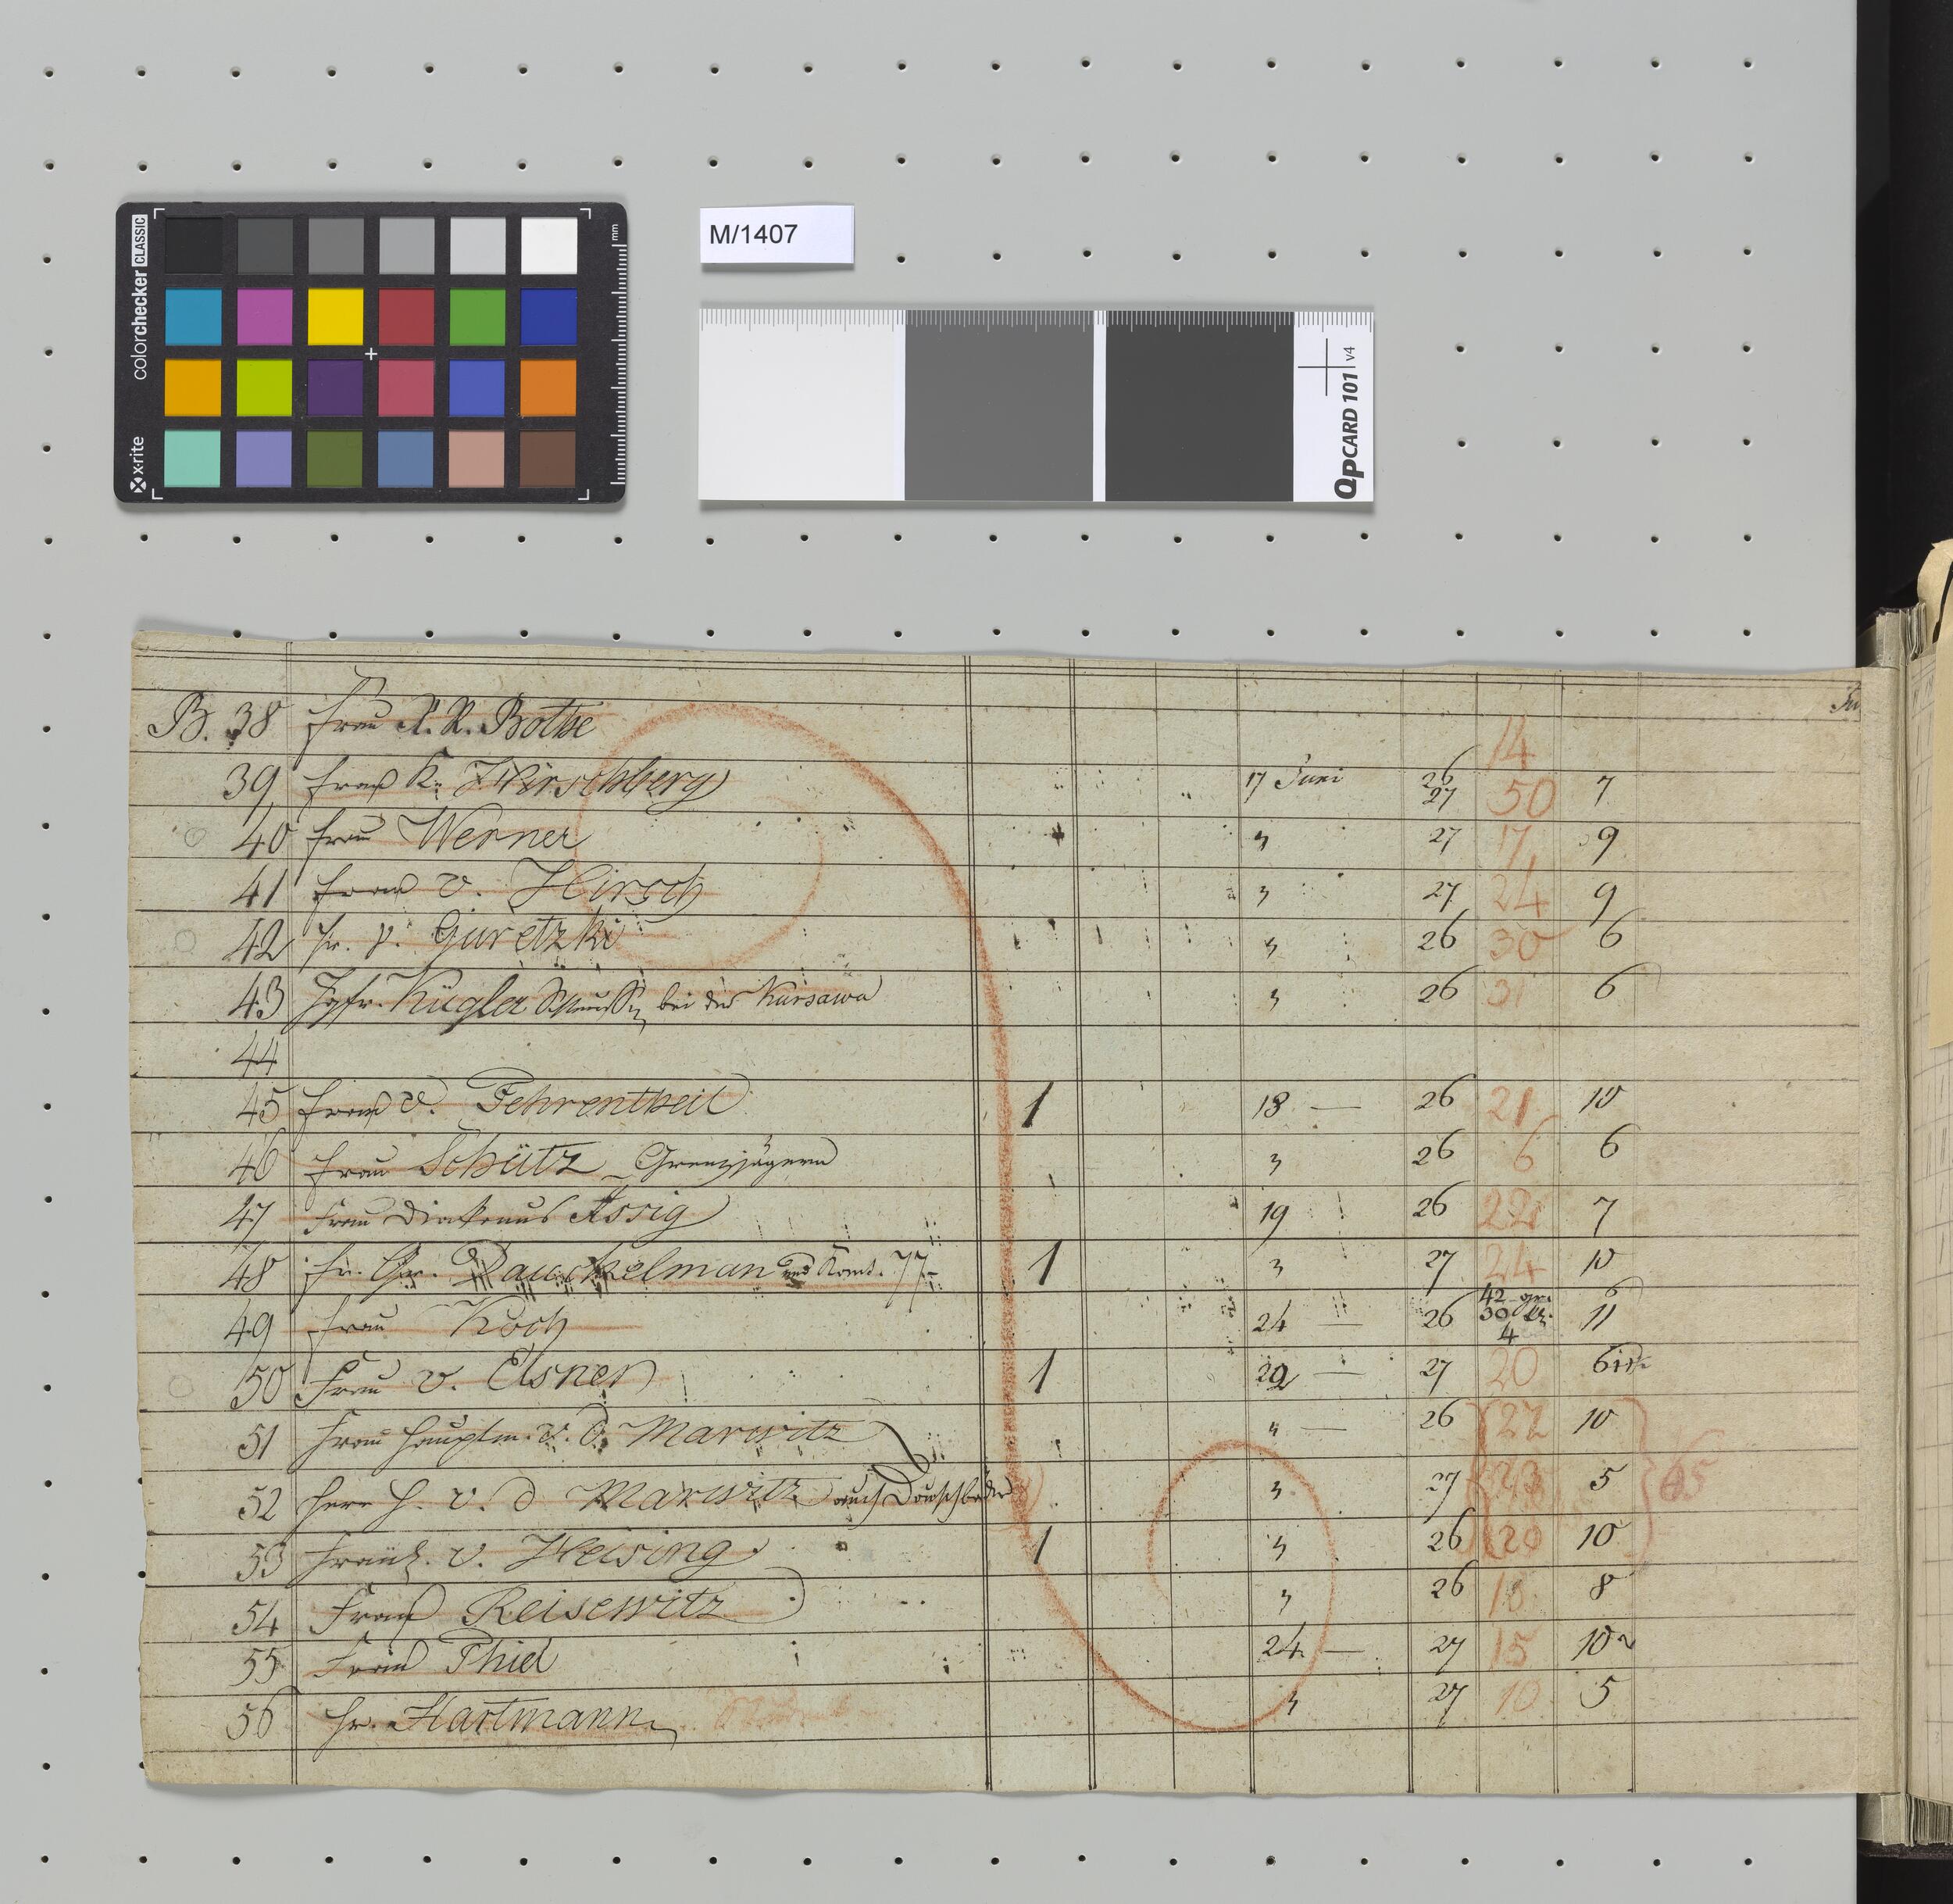 colorchecker CLASSIC
x-rite
mm
M/1407
QPCARD 101 v4
B. 38 Frau K. R. Bothe 14
39 Frau K. Hirschberg 17 Juni 26 27 50 7
40 Frau Werner " 27 17 9
41 Frau v. Hirsch " 27 24 9
42 Hr. v. Guretzki " 26 30 6
43 Jgfr. Kügler bei der Kursawa " 26 31 6
44
45 Frau v. Fehrentheil 1 18 — 26 21 10
46 Frau Schütz Grenzjägern " 26 6 6
47 Frau Diakonus Assig 19 26 22 7
48 Hr. Gr. Dauckelman und Komt. 77 1 " 27 24 10
49 Frau Koch 24 — 26 42 gr. 30 4 6 11
50 Frau v. Elsner 1 22 — 27 20 6
51 Frau Hauptm. v. d. Marwitz " — 26 22 10
52 Herr H. v. d Marwitz auch Douschbäder " 27 23 5 65
53 Fräul. v. Heising 1 " 26 20 10
54 Frau Reisewitz " 26 18 8
55 Frau Thiel 24 — 27 15 10
56 Hr. Hartmann " 27 10 5